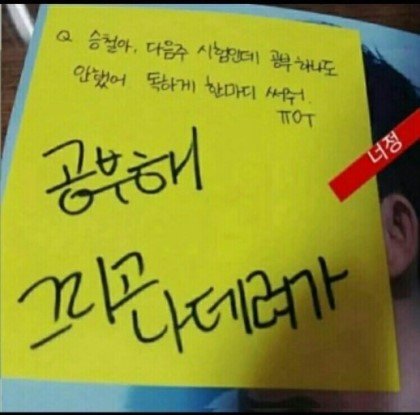 Q 승철아, 다음주 시험인데 공부 하나도
안했어 독하게 한마디 써줘.
ㅠOT
공부해
그리고
나데려가
너정